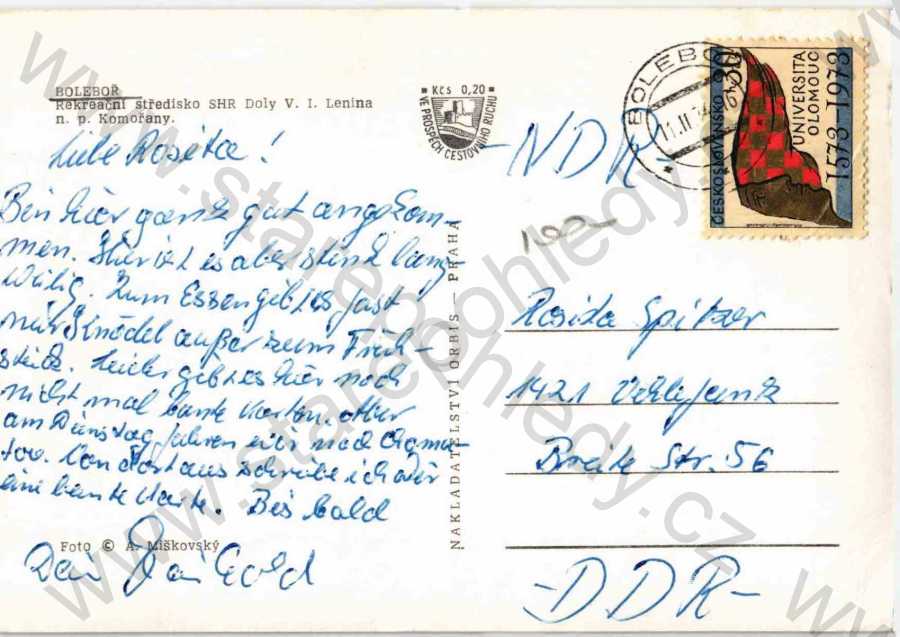 BOLEBOŘ
Rekreační středisko SHR Doly V. I. Lenina
n. p. Komořany.
Liebe Rosita!
Bin hier ganz gut angekom-
men. Hier ist es aber stink lang-
weilig. Zum Essen gibt es fast
nur Knödel außer zum Früh-
stück. Leider gibt es hier noch
nicht mal bunte Karten. Aber
am Dienstag fahren wir nach Chomu-
tov. Von dort aus schreibe ich dir
eine bunte Karte. Bis bald
Foto © A. Miškovský
Dein
NAKLADATELSTVÍ ORBIS — PRAHA
* Kčs 0,20 *
VE PROSPĚCH CESTOVNÍHO RUCHU
BOLEBOŘ
ČESKOSLOVENSKO 30
UNIVERSITA
OLOMOUC
1573-1973
-NDR-
Rosita Spitzer
1421 Vehlefanz
Breite Str. 56
-DDR-
www.starepohledy.cz
www.starepohledy.cz